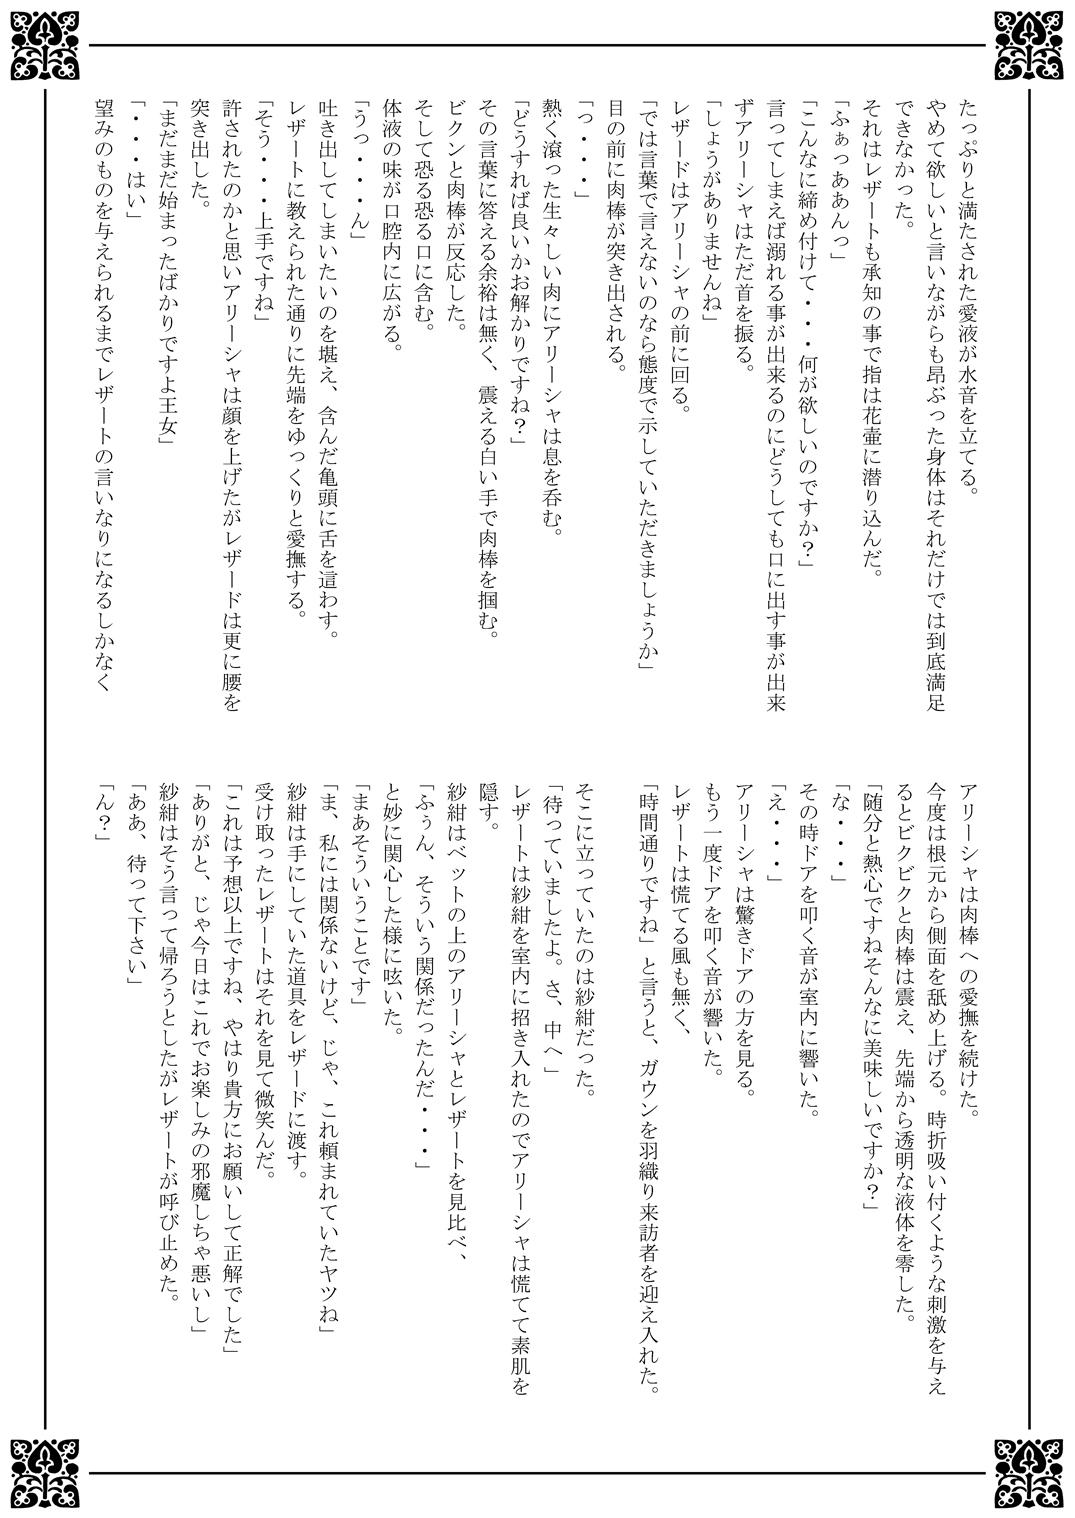 たっぷりと満たされた愛液が水音を立てる。
やめて欲しいと言いながらも昂ぶった身体はそれだけでは到底満足
できなかった。
それはレザートも承知の事で指は花壷に潜り込んだ。
「ふぁっああんっ」
「こんなに締め付けて・・・何が欲しいのですか？」
言ってしまえば溺れる事が出来るのにどうしても口に出す事が出来
ずアリーシャはただ首を振る。
「しょうがありませんね」
レザードはアリーシャの前に回る。
「では言葉で言えないのなら態度で示していただきましょうか」
目の前に肉棒が突き出される。
「っ・・・」
熱く滾った生々しい肉にアリーシャは息を呑む。
「どうすれば良いかお解かりですね？」
その言葉に答える余裕は無く、震える白い手で肉棒を掴む。
ビクンと肉棒が反応した。
そして恐る恐る口に含む。
体液の味が口腔内に広がる。
「うっ・・・ん」
吐き出してしまいたいのを堪え、含んだ亀頭に舌を這わす。
レザートに教えられた通りに先端をゆっくりと愛撫する。
「そう・・・上手ですね」
許されたのかと思いアリーシャは顔を上げたがレザードは更に腰を
突き出した。
「まだまだ始まったばかりですよ王女」
「・・・はい」
望みのものを与えられるまでレザートの言いなりになるしかなく
アリーシャは肉棒への愛撫を続けた。
今度は根元から側面を舐め上げる。時折吸い付くような刺激を与え
るとビクビクと肉棒は震え、先端から透明な液体を零した。
「随分と熱心ですねそんなに美味しいですか？」
「な・・・」
その時ドアを叩く音が室内に響いた。
「え・・・」
アリーシャは驚きドアの方を見る。
もう一度ドアを叩く音が響いた。
レザートは慌てる風も無く、
「時間通りですね」と言うと、ガウンを羽織り来訪者を迎え入れた。
そこに立っていたのは紗紺だった。
「待っていましたよ。さ、中へ」
レザートは紗紺を室内に招き入れたのでアリーシャは慌てて素肌を
隠す。
紗紺はベットの上のアリーシャとレザートを見比べ、
「ふぅん、そういう関係だったんだ・・・」
と妙に関心した様に呟いた。
「まあそういうことです」
「ま、私には関係ないけど、じゃ、これ頼まれていたヤツね」
紗紺は手にしていた道具をレザードに渡す。
受け取ったレザートはそれを見て微笑んだ。
「これは予想以上ですね、やはり貴方にお願いして正解でした」
「ありがと、じゃ今日はこれでお楽しみの邪魔しちゃ悪いし」
紗紺はそう言って帰ろうとしたがレザートが呼び止めた。
「ああ、待って下さい」
「ん？」